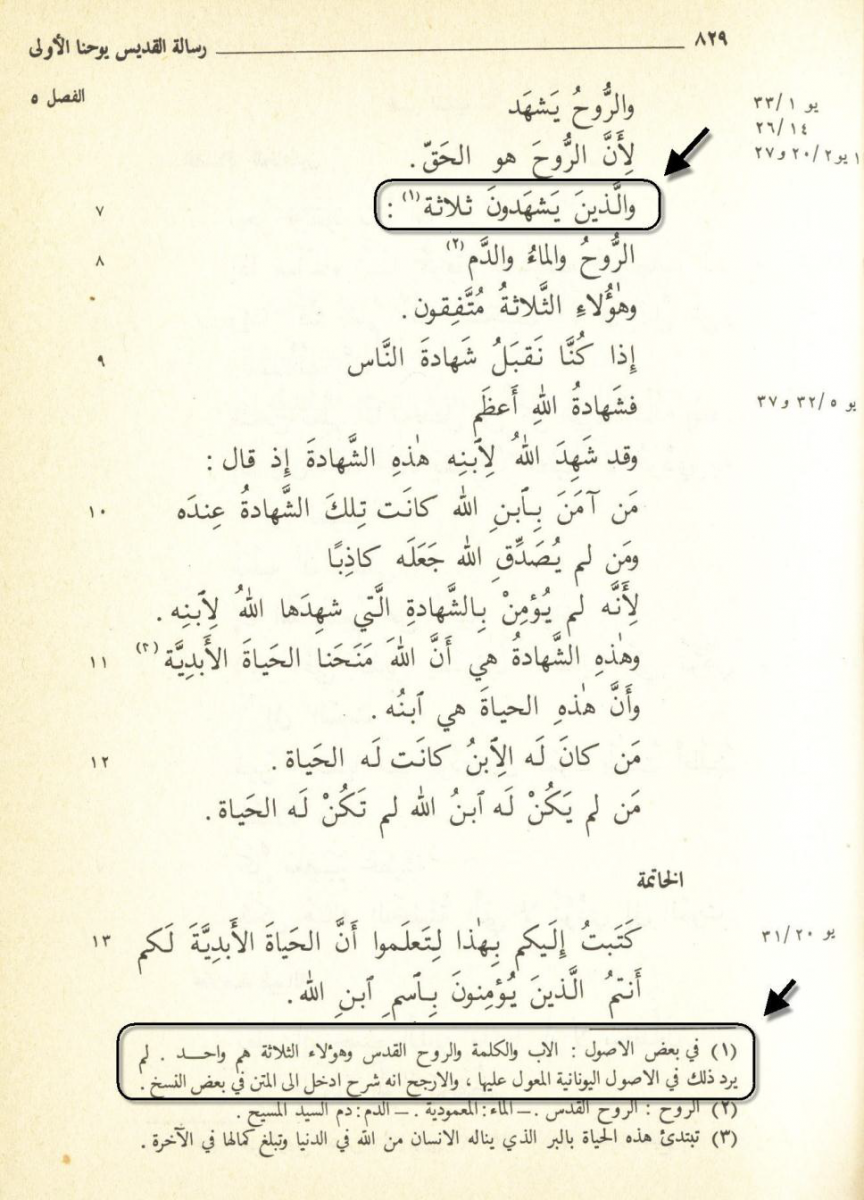 رسالة القديس يوحنا الأولى ٨٢٩
الفصل ٥
والرُّوحُ يَشهَد يو ١/٣٣
١٤/٢٦
لِأَنَّ الرُّوحَ هو الحَقّ. ١ يو٢/٢٠ و٢٧
٧ والَّذينَ يَشهَدونَ ثلاثة (١) :
٨ الرُّوحُ والماءُ والدَّم (٢)
وهٰؤُلاءِ الثَّلاثةُ مُتَّفِقون.
٩ إِذا كُنَّا نَقبَلُ شَهادةَ النَّاس
فشَهادةُ اللهِ أَعظَم يو ٥/٣٢ و٣٧
وقد شَهِدَ اللهُ لِٱبنِه هٰذِهِ الشَّهادةَ إِذ قال :
١٠ مَن آمَنَ بِٱبنِ الله كانَت تِلكَ الشَّهادةُ عِندَه
ومَن لم يُصَدِّقِ الله جَعَلَه كاذِبًا
لِأَنَّه لم يُؤمِنْ بِالشَّهادةِ الَّتي شهِدَها اللهُ لِٱبنِه.
١١ وهٰذِهِ الشَّهادةُ هي أَنَّ اللهَ مَنَحَنا الحَياةَ الأَبدِيَّة (٣)
وأَنَّ هٰذِهِ الحياةَ هي ٱبنُه.
١٢ مَن كانَ لَه الِٱبنُ كانَت لَه الحَياة.
مَن لم يَكُنْ لَه ٱبنُ الله لم تَكُنْ لَه الحَياة.
الخاتمة
١٣ كَتَبتُ إِلَيكم بِهٰذا لِتَعلَموا أَنَّ الحَياةَ الأَبدِيَّةَ لَكم يو ٢٠/٣١
أَنتمُ الَّذينَ يُؤمِنونَ بِٱسمِ ٱبنِ الله.
(١) في بعض الاصول : الاب والكلمة والروح القدس وهؤلاء الثلاثة هم واحد. لم
يرد ذلك في الاصول اليونانية المعول عليها ، والارجح انه شرح ادخل الى المتن في بعض النسخ.
(٢) الروح : الروح القدس. — الماء : المعمودية. — الدم : دم السيد المسيح.
(٣) تبتدئ هذه الحياة بالبر الذي يناله الانسان من الله في الدنيا وتبلغ كمالها في الآخرة.